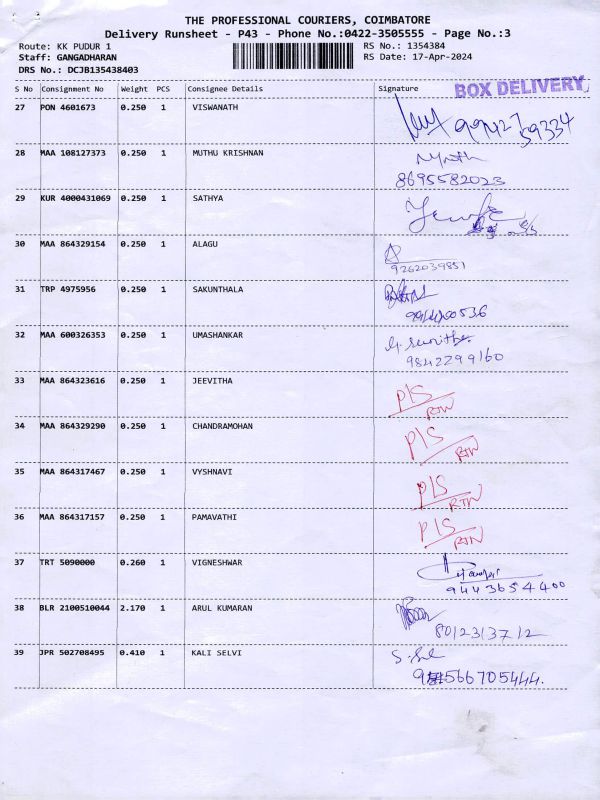 THE PROFESSIONAL COURIERS, COIMBATORE
Delivery Runsheet - P43 - Phone No.:0422-3505555 - Page No.:3
Route: KK PUDUR 1 RS No.: 1354384
Staff: GANGADHARAN RS Date: 17-Apr-2024
DRS No.: DCJB135438403
S No Consignment No Weight PCS Consignee Details Signature BOX DELIVERY
27 PON 4601673 0.250 1 VISWANATH 99427
59334
28 MAA 108127373 0.250 1 MUTHU KRISHNAN
8695582023
29 KUR 4000431069 0.250 1 SATHYA
30 MAA 864329154 0.250 1 ALAGU
9262039851
31 TRP 4975956 0.250 1 SAKUNTHALA
32 MAA 600326353 0.250 1 UMASHANKAR
9842299160
33 MAA 864323616 0.250 1 JEEVITHA P/S
RTN
34 MAA 864329290 0.250 1 CHANDRAMOHAN P/S
RTN
35 MAA 864317467 0.250 1 VYSHNAVI P/S
RTN
36 MAA 864317157 0.250 1 PAMAVATHI P/S
RTN
37 TRT 5090000 0.260 1 VIGNESHWAR
9443654400
38 BLR 2100510044 2.170 1 ARUL KUMARAN
8012313712
39 JPR 502708495 0.410 1 KALI SELVI
566705444.